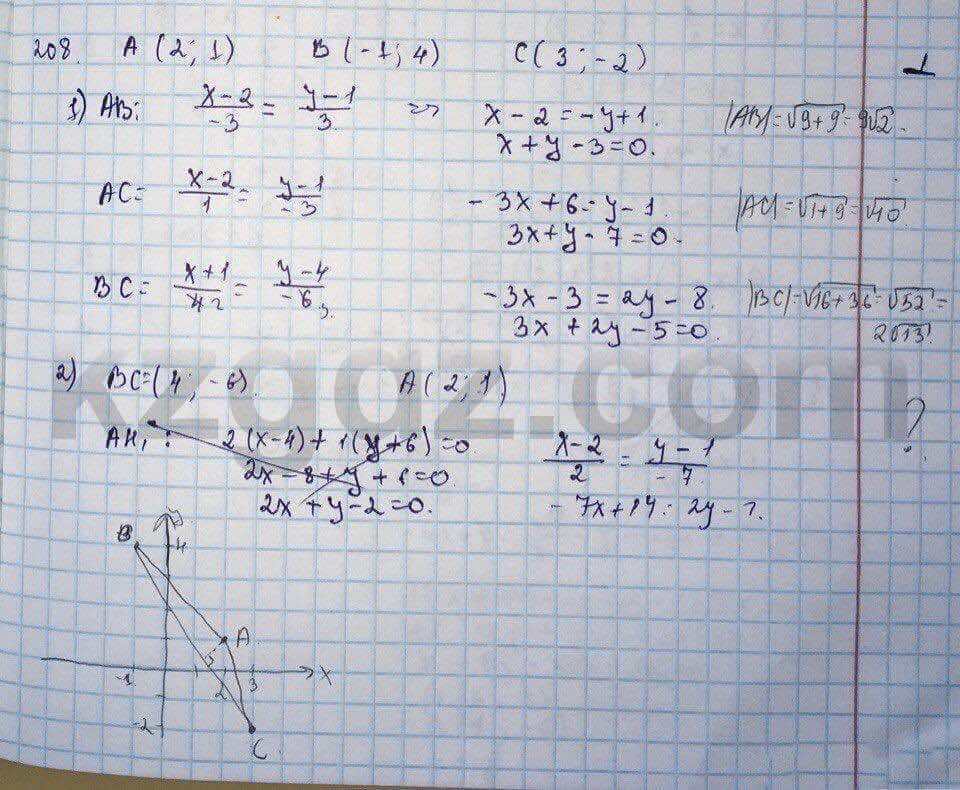 208. A (2; 1) B (-1; 4) C (3; -2) 1
1) AB: (x-2)/-3 = (y-1)/3 => x - 2 = -y + 1. |AB| = √9+9 = 3√2.
x + y - 3 = 0.
AC = (x-2)/1 = (y-1)/-3 - 3x + 6 = y - 1. |AC| = √1+9 = √10.
3x + y - 7 = 0.
BC = (x+1)/4 2 = (y-4)/-6 3. -3x - 3 = 2y - 8. |BC| = √16+36 = √52 =
3x + 2y - 5 = 0. 2√13.
2) BC = (4; -6). A (2; 1) ?
AH₁ : 2(x-4) + 1(y+6) = 0 (x-2)/2 = (y-1)/-7
2x - 8 + y + 6 = 0.
2x + y - 2 = 0. - 7x + 14 = 2y - 2.
B 4
A
-1 2 3 x
-2
C
kzgdz.com